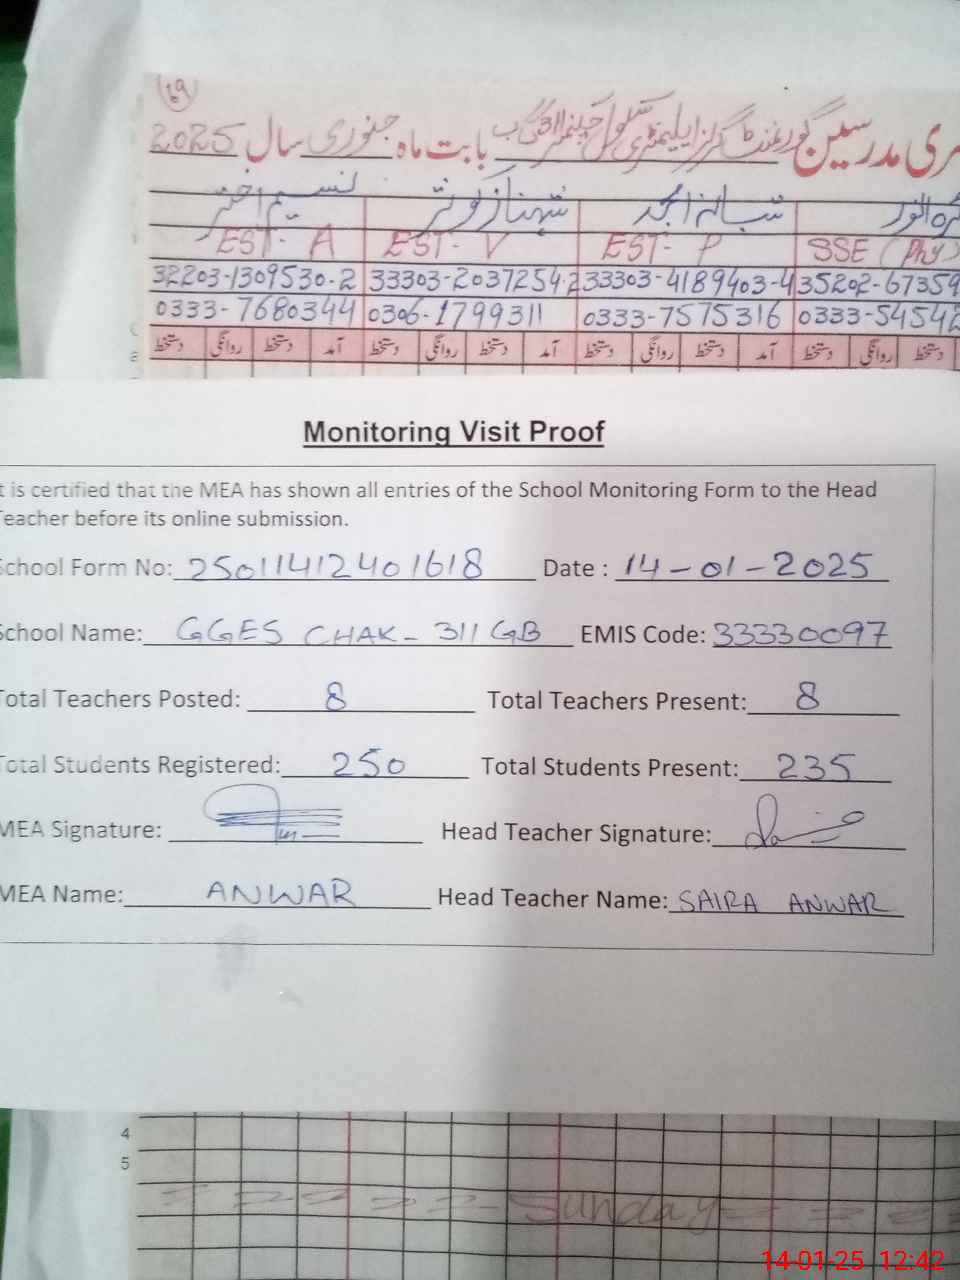 69
مدرسین گورنمنٹ گرلز ایلیمنٹری سکول چک نمبر 311 گ ب بابت ماہ جنوری سال 2025
شبانہ امجد شہناز کوثر نسیم اختر
EST- A EST- V EST- P SSE (Phy)
32203-1309530-2 33303-2037254-2 33303-4189403-4 35202-67359
0333-7680344 0306-1799311 0333-7575316 0333-54542
دستخط روانگی دستخط آمد دستخط روانگی دستخط آمد دستخط روانگی دستخط آمد دستخط روانگی دستخط
Monitoring Visit Proof
t is certified that the MEA has shown all entries of the School Monitoring Form to the Head
Teacher before its online submission.
School Form No: 25011412401618 Date : 14-01-2025
School Name: GGES CHAK- 311 GB EMIS Code: 33330097
Total Teachers Posted: 8 Total Teachers Present: 8
Total Students Registered: 250 Total Students Present: 235
MEA Signature: Head Teacher Signature:
MEA Name: ANWAR Head Teacher Name: SAIRA ANWAR
4
5
Sunday
14-01-25 12:42